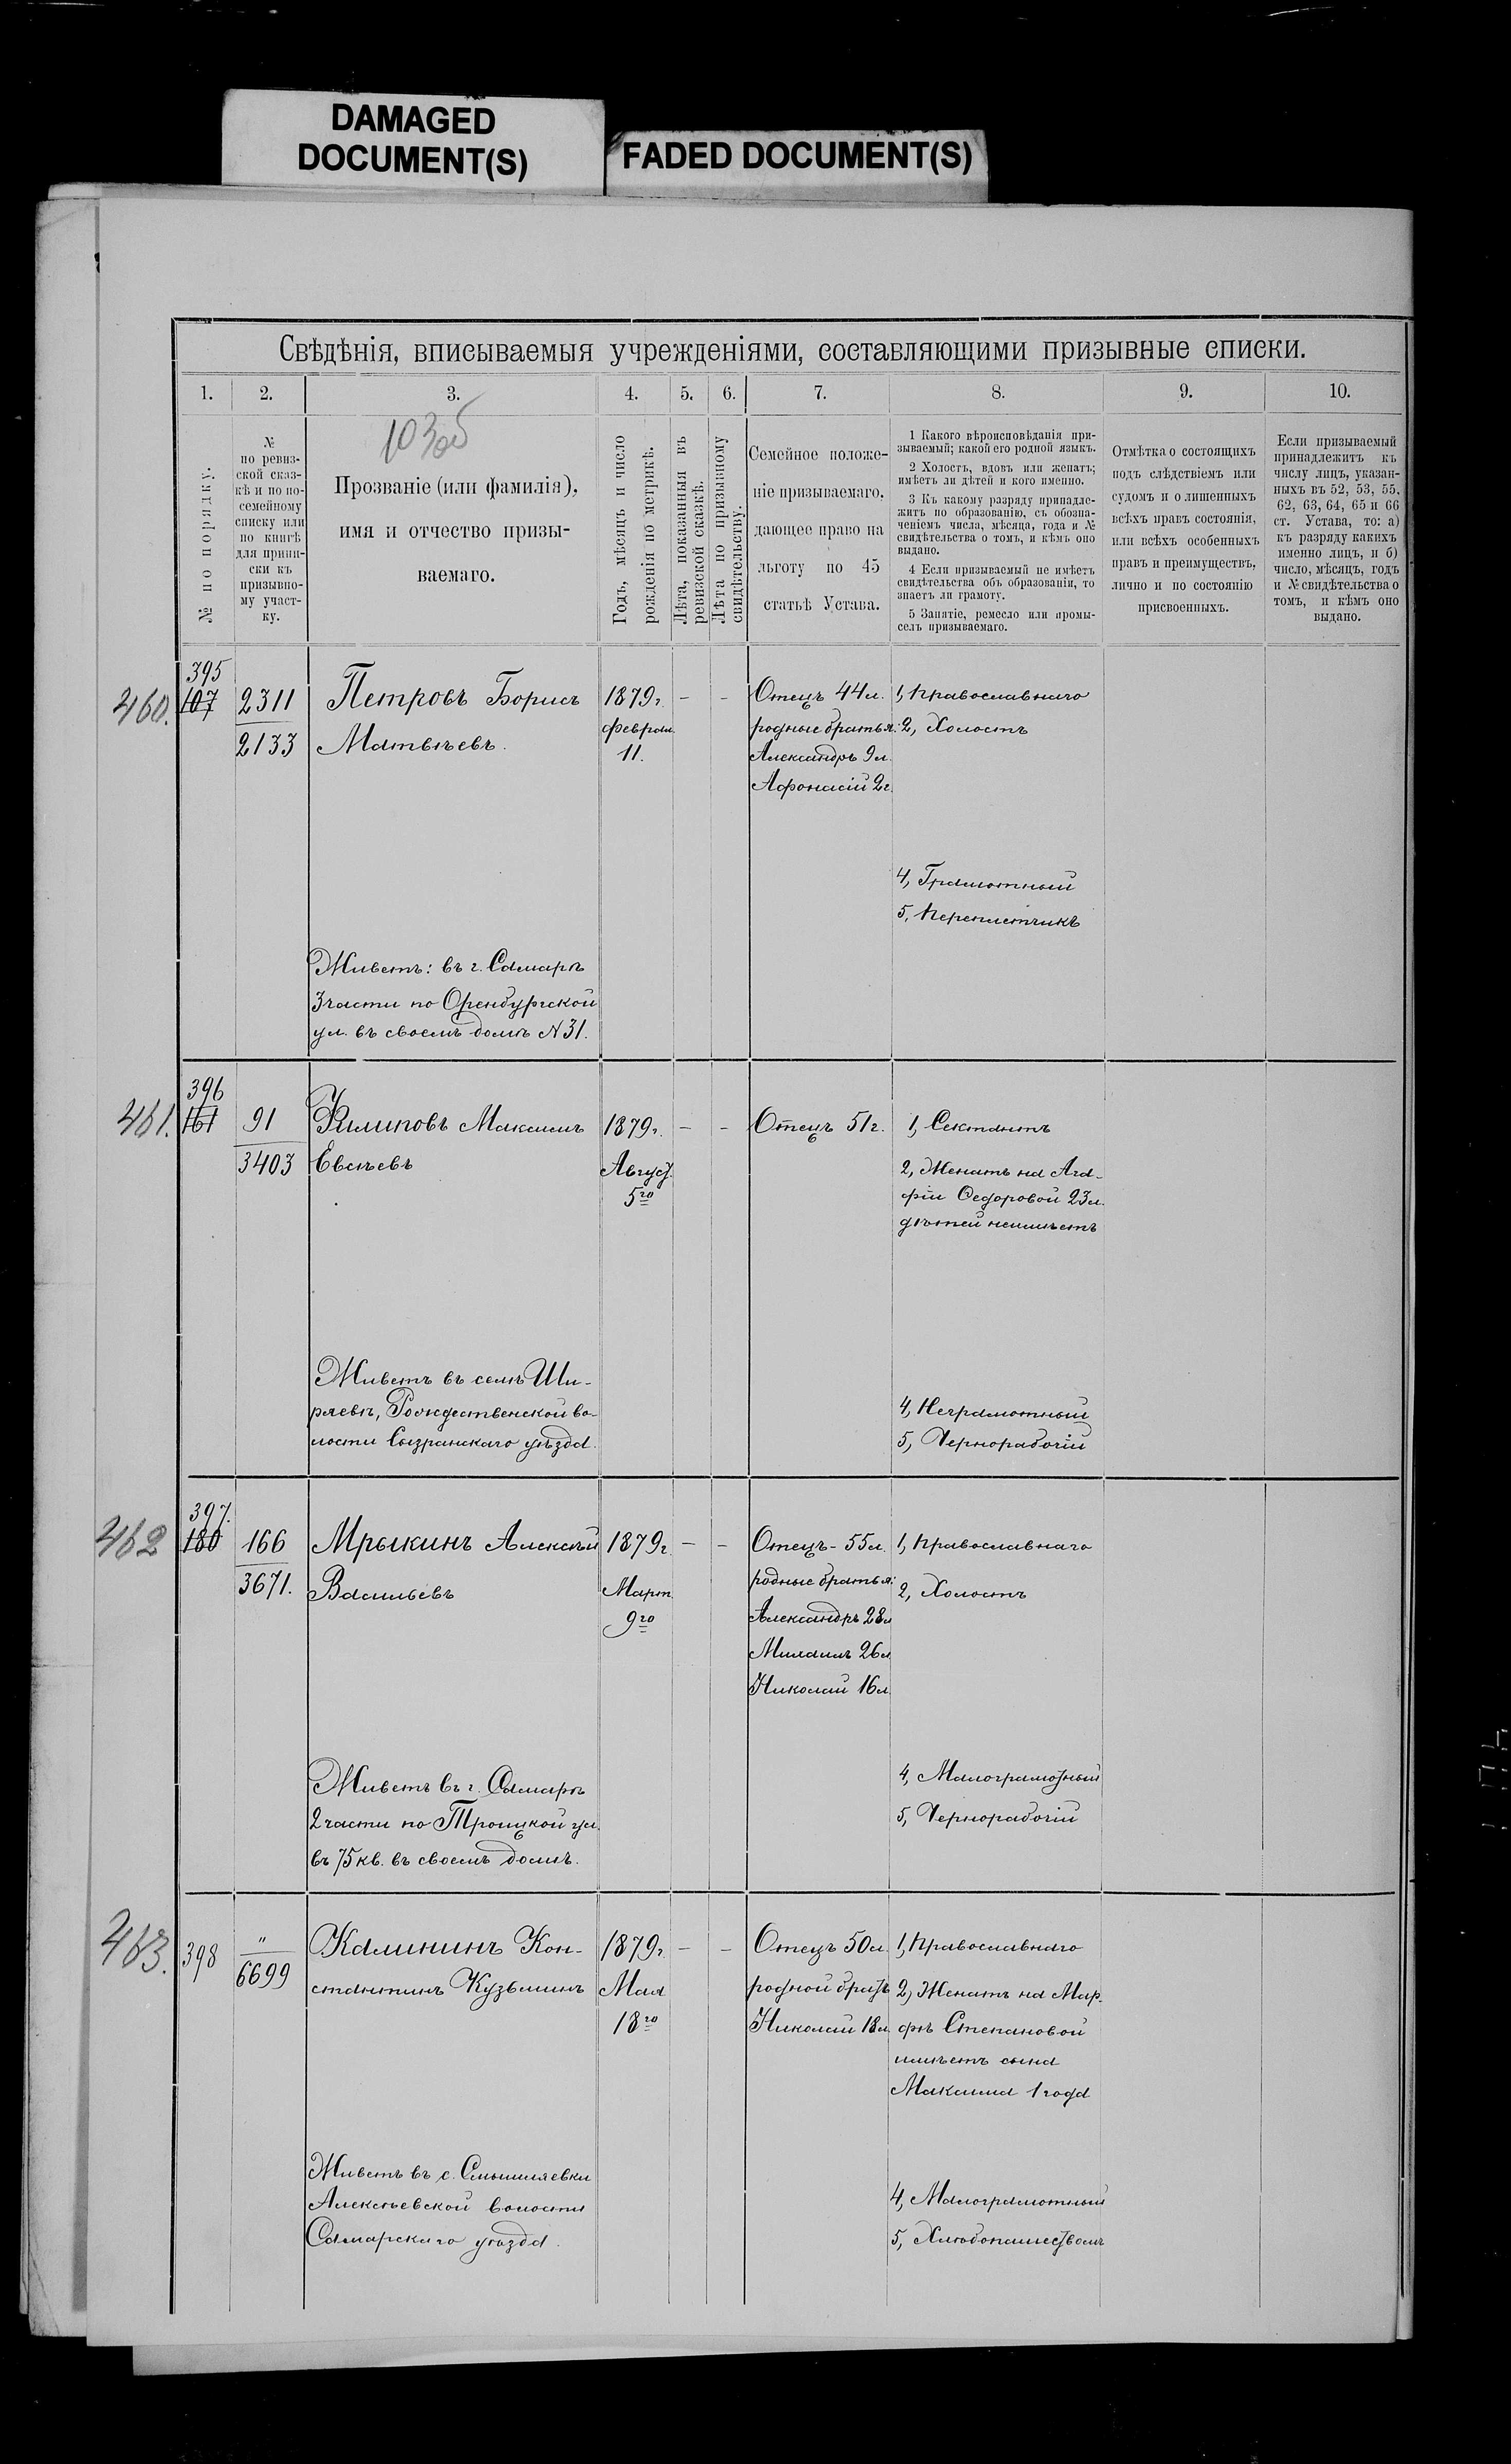 DAMAGED
DOCUMENT(S)
FADED DOCUMENT(S)
Свѣдѣнія, вписываемыя учрежденіями, составляющими призывные списки.
1. 2. 3. 4. 5. 6. 7. 8. 9. 10.
№ по порядку.
№
по ревиз-
ской сказ-
кѣ и по по-
семейному
списку или
по книгѣ
для припи-
ски къ
призывно-
му участ-
ку.
103об
Прозваніе (или фамилія),
имя и отчество призы-
ваемаго.
Годъ, мѣсяцъ и число
рожденія по метрикѣ.
Лѣта, показанныя въ
ревизской сказкѣ.
Лѣта по призывному
свидѣтельству.
Семейное положе-
ніе призываемаго,
дающее право на
льготу по 45
статьѣ Устава.
1 Какого вѣроисповѣданія при-
зываемый; какой его родной языкъ.
2 Холостъ, вдовъ или женатъ;
имѣетъ ли дѣтей и кого именно.
3 Къ какому разряду принадле-
житъ по образованію, съ обозна-
ченіемъ числа, мѣсяца, года и №
свидѣтельства о томъ, и кѣмъ оно
выдано.
4 Если призываемый не имѣетъ
свидѣтельства объ образованіи, то
знаетъ ли грамоту.
5 Занятіе, ремесло или промы-
селъ призываемаго.
Отмѣтка о состоящихъ
подъ слѣдствіемъ или
судомъ и о лишенныхъ
всѣхъ правъ состоянія,
или всѣхъ особенныхъ
правъ и преимуществъ,
лично и по состоянію
присвоенныхъ.
Если призываемый
принадлежитъ къ
числу лицъ, указан-
ныхъ въ 52, 53, 55,
62, 63, 64, 65 и 66
ст. Устава, то: а)
къ разряду какихъ
именно лицъ, и б)
число, мѣсяцъ, годъ
и № свидѣтельства о
томъ, и кѣмъ оно
выдано.
460.
395
107
2311
2133
Петровъ Борисъ
Матвѣевъ.
1879г.
феврал.
11.
- -
Отецъ 44л.
родные братья:
Александръ 9л.
Афонасій 2г.
1, Православнаго
2, Холостъ
4, Грамотный
5, Переплетчикъ
Живетъ: въ г. Самарѣ
3 части по Оренбургской
ул. въ своемъ домѣ N 31.
461.
396
161
91
3403
Филиповъ Максимъ
Евсѣевъ
1879г.
Август.
5го
- -
Отецъ 51г.
1, Сектантъ
2, Женатъ на Ага-
фіи Федоровой 23л.
дѣтей неимѣетъ
4, Неграмотный
5, Чернорабочій
Живетъ въ селѣ Ши-
ряевѣ, Рождественской во-
лости Сызранскаго уѣзда.
462
397.
180
166
3671.
Мрыкинъ Алексѣй
Васильевъ
1879г.
Март.
9го
- -
Отецъ - 55л.
родные братья:
Александръ 28л
Михаилъ 26л
Николай 16л.
1, Православнаго
2, Холостъ
4, Малограмотный
5, Чернорабочій
Живетъ въ г. Самарѣ
2 части по Троицкой ул.
въ 75 кв. въ своемъ домѣ.
463.
398
"
6699
Калининъ Кон-
стантинъ Кузьминъ
1879г.
Мая
18го
- -
Отецъ 50л.
родной братъ
Николай 18л.
1, Православнаго
2, Женатъ на Мар-
фѣ Степановой
имѣетъ сына
Максима 1 года
4, Малограмотный
5, Хлѣбопашествомъ
Живетъ въ с. Смышляевки
Алексѣевской волости
Самарскаго уѣзда.